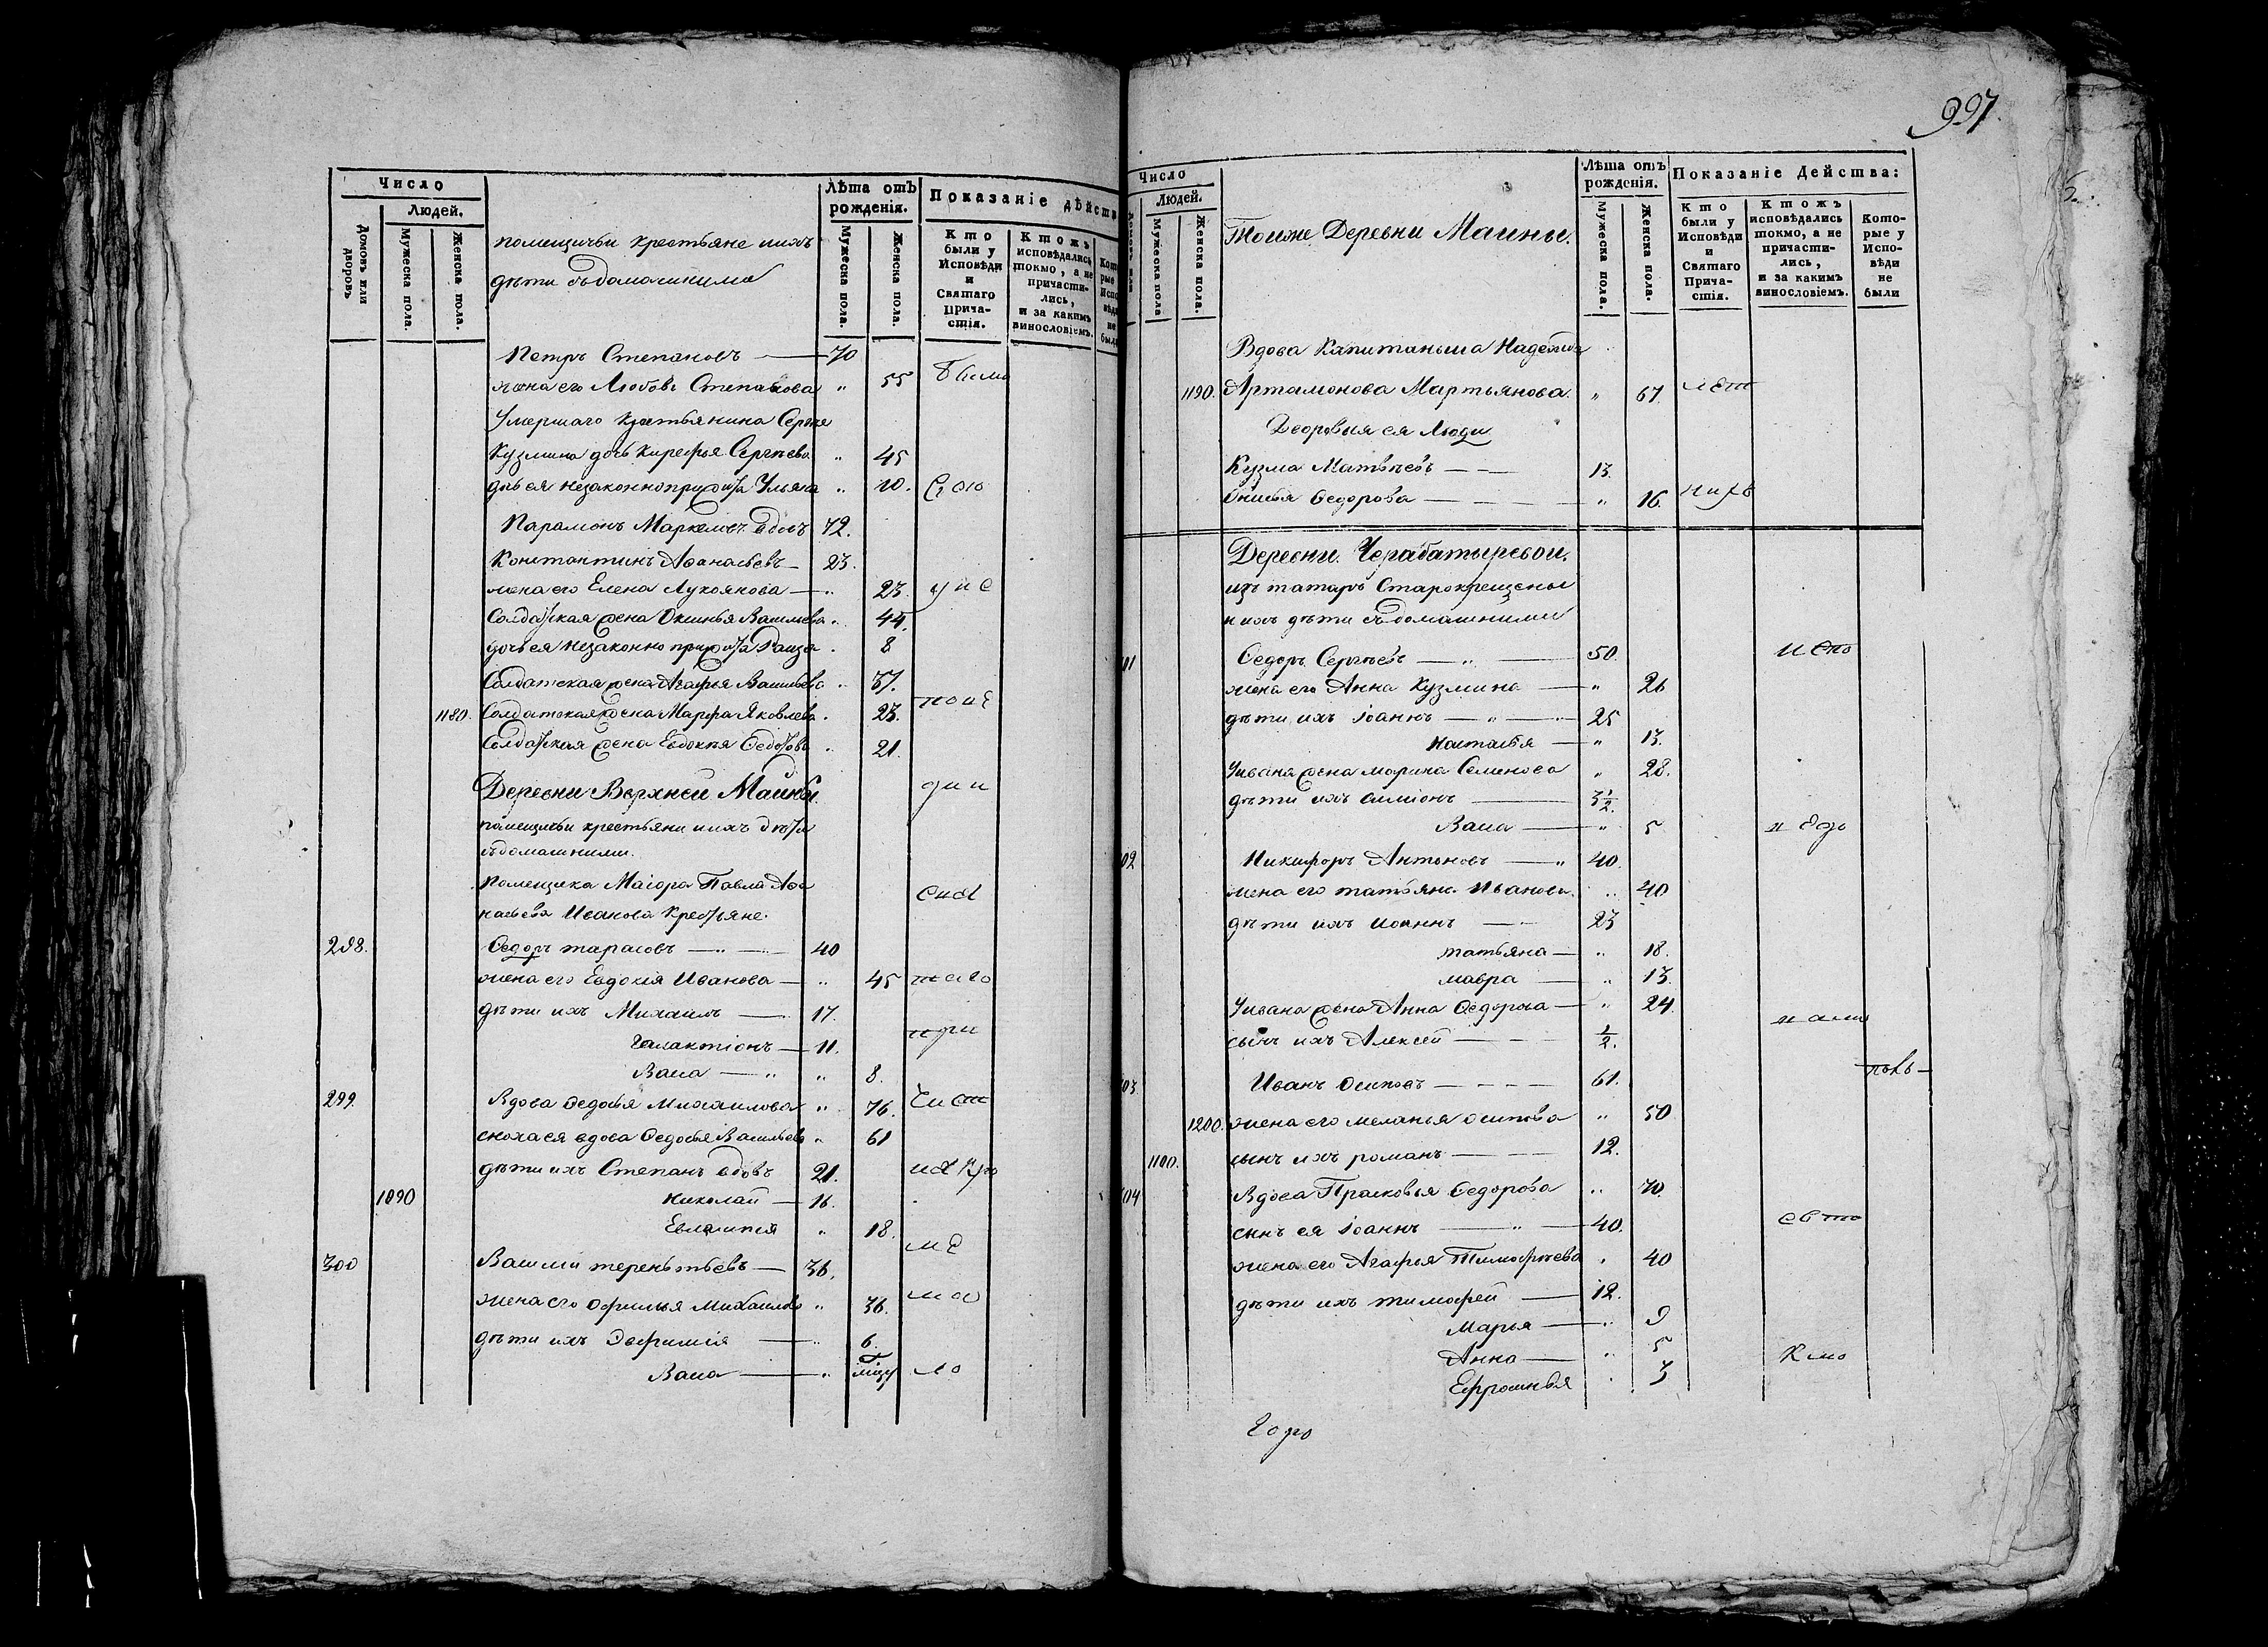 Число
Людей.
Домовъ или дворовъ
Мужеска пола.
Женска пола.
помещичьи крестьяне и ихъ
дѣти съ домашними
Лѣта отъ рожденія.
Мужеска пола.
Женска пола.
Показаніе дѣйств
Кто были у Исповѣди и Святаго Прича-стія.
Кто жъ исповѣдались токмо, а не причасти-лись, и за какимъ винословіемъ.
Петръ Степановъ — 70
жена его Любовь Степанова " 55 были
Умершаго крестьянина Сергея
Кузмина дочь Кирефья Сергѣева " 45
Ульяна " 10.
Парамонъ Маркеловъ вдовъ 72.
Константинъ Афанасьевъ — 23.
жена его Елена Лукоянова — " 23. у и с
Солдатская жена Оксинья Васильева " 44.
дочь ея незаконно 8
Солдатская жена Агафья Васильева " 37.
1180. Солдатская жена Марфа Яковлева 23.
Солдатская жена Евдокия Федотова 21.
Деревни Верхней Майны.
помещичьи крестьяни и ихъ дѣти
съ домашними.
Помещика Маіора Павла Афа
насьева Иванова Крестьяне.
298. Ѳедоръ тарасовъ — " — 40
жена его Евдокія Иванова — " 45
дѣти ихъ Михаилъ — 17.
Галактіонъ — 11.
Васа — " " 8.
299. Вдова Ѳедосья Михаилова " 76.
сноха ея вдова Ѳедосья Васильева " 61
дѣти ихъ Степанъ вдовъ 21.
1090 Николай — 16.
Евлампия " 18.
300 Василій терентьевъ — 36.
жена его Офимья Михаилова " 36.
дѣти ихъ Евфимія — " 6.
Васа — "
997.
Число
Людей.
Мужеска пола
Женска пола.
Тоиже Деревни Маины.
Лѣта отъ рожденія.
Мужеска пола.
Женска пола.
Показаніе Действа:
Кто были у Исповѣди и Святаго Прича-стія.
Кто жъ исповѣдались токмо, а не причасти-лись, и за какимъ винословіемъ.
Кото-рые у Испо-вѣди не были
Вдова Капитанша Надежда
1190. Артамонова Мартьянова. " 67.
Дворовыя ея Люди
Кузма Матвѣевъ — — 13.
Ѳедорова — — " 16.
Деревни Черабатыревой.
изъ татаръ Старокрещены
и ихъ дѣти съ домашними
01 Ѳедоръ Сергѣевъ — " — 50.
жена его Анна Кузмина — " 26
дѣти ихъ Іоаннъ — " — 25
Настасья — " 13.
У Ивана жена марина Семенова " 28.
дѣти ихъ симіонъ — 3 1/2.
Васа — " 5
02 Никифоръ Антоновъ — " 40.
жена его татьяна Иванова. " 40
дѣти ихъ Иоаннъ — 23
татьяна — " 18.
мавра — " 13.
У ивана жена Анна Ѳедорова — " 24.
сынъ ихъ Алексей — 1/2.
03 Иванъ Осиповъ — — — 61.
1200. жена его меланья осипова " 50
1100. сынъ ихъ романъ — — 12.
04 Вдова Прасковья Ѳедорова " 70.
сынъ ея Іоаннъ — " — 40.
жена его Агафья Тимофѣева " 40
дѣти ихъ тимофей — 12.
Марья — " 9
Анна — " 5
Ефросинья " 3